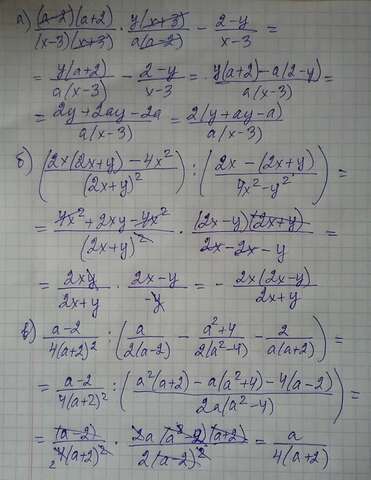 а) ((a-2)(a+2))/((x-3)(x+3)) · (y(x+3))/(a(a-2)) - (2-y)/(x-3) =
= (y(a+2))/(a(x-3)) - (2-y)/(x-3) = (y(a+2)-a(2-y))/(a(x-3)) =
= (2y+2ay-2a)/(a(x-3)) = (2(y+ay-a))/(a(x-3))
б) ((2x(2x+y)-4x²)/((2x+y)²)) : ((2x-(2x+y))/(4x²-y²)) =
= (4x²+2xy-4x²)/((2x+y)²) · ((2x-y)(2x+y))/(2x-2x-y) =
= (2xy)/(2x+y) · (2x-y)/(-y) = - (2x(2x-y))/(2x+y)
в) (a-2)/(4(a+2)²) : (a/(2(a-2)) - (a²+4)/(2(a²-4)) - 2/(a(a+2))) =
= (a-2)/(4(a+2)²) : ((a²(a+2)-a(a²+4)-4(a-2))/(2a(a²-4))) =
= (a-2)/(4(a+2)²) · (2a(a-2)(a+2))/(2(a-2)²) = a/(4(a+2))